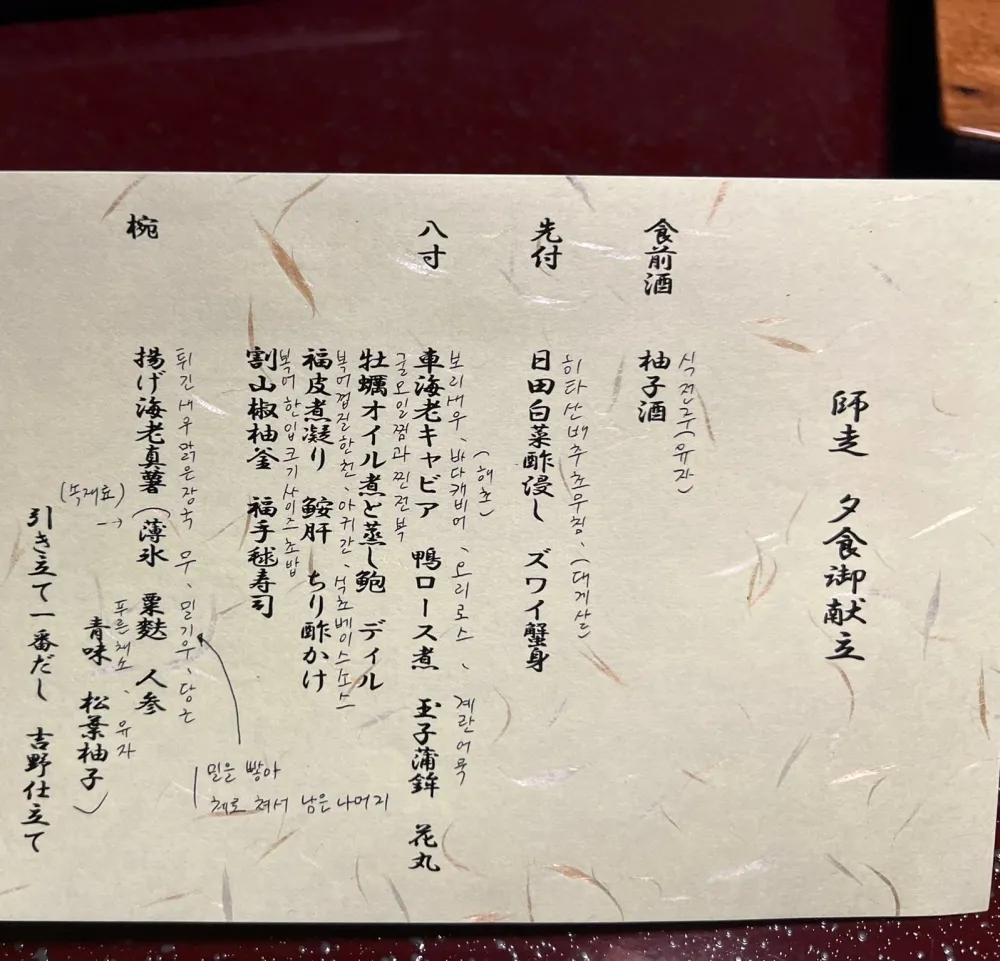 師走 夕食御献立
食前酒
식전주(유자)
柚子酒
先付
히타산배추초무침、(대게살)
日田白菜酢浸し ズワイ蟹身
八寸
(해초)
보리새우、바다캐비어、오리로스、계란어묵
車海老キャビア 鴨ロース煮 玉子蒲鉾 花丸
굴오일찜과 찐전복
牡蠣オイル煮と蒸し鮑 ディル
복어껍질한천、아귀간、식초베이스소스
福皮煮凝り 鮟肝 ちり酢かけ
복어 한입크기사이즈초밥
割山椒柚釜 福手毬寿司
椀
튀긴새우맑은장국 무、밀기우、당근
밀을 빻아
체로 쳐서 남은 나머지
揚げ海老真薯(薄氷 粟麩 人参
(속재료)→
푸른채소、유자
青味 松葉柚子)
引き立て一番だし 吉野仕立て